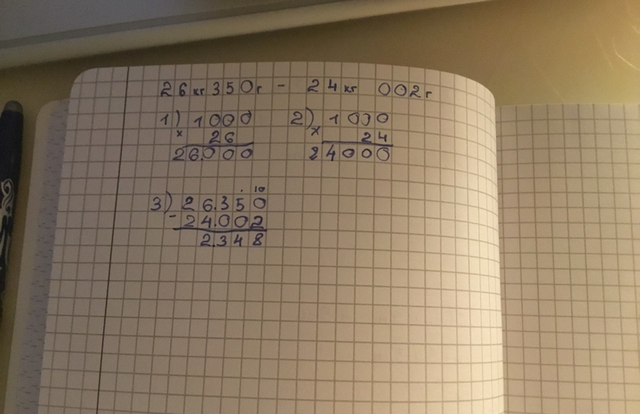 26 кг 350 г - 24 кг 002 г
1) 1000 2) 1000
× 26 × 24
26000 24000
. 10
3) 26.350
- 24.002
2.348